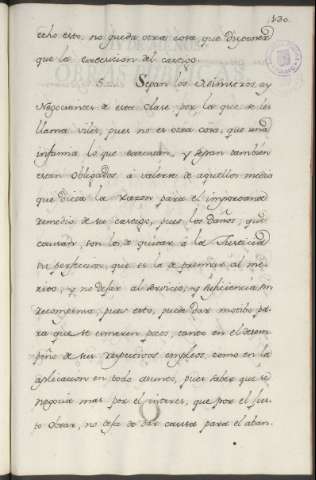 130.
echo esto, no queda otra cosa que disponer
que la execucion del castigo.
5. Sepan los Ministros, ay
Negociantes de esta clase por la que se les
llama viles, pues no es otra cosa, que una
infamia lo que executan, y sepan tambien
estan obligados à valerse de aquellos medios
que dicta la razon para el importante
remedio de su castigo, pues los daños, que
causan, son los de quitar à la Justicia
su perfeccion, que es la de premiar al me-
rito, y no dejar al servicio, y suficiencia sin
recompensa, pues esto, puede dar motibo pa-
ra que se esmeren pocos, tanto en el desem-
peño de sus respectivos empleos, como en la
aplicacion en todo asunto, pues saber que se
negocia mas por el interes, que por el jus-
to obrar, no deja de dar causa para el aban-